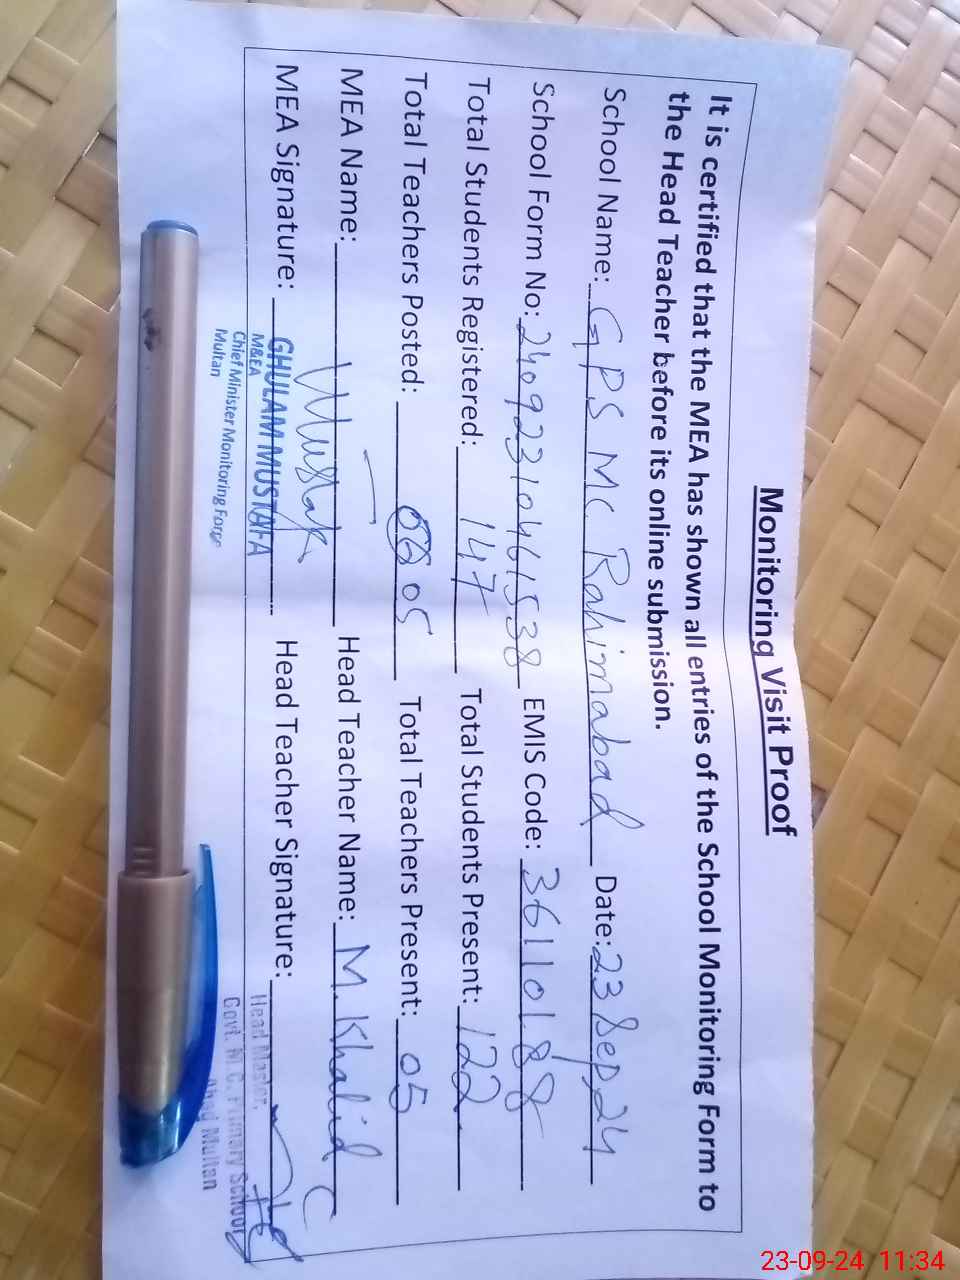 Monitoring Visit Proof
It is certified that the MEA has shown all entries of the School Monitoring Form to
the Head Teacher before its online submission.
School Name: GPS MC Rahimabad Date: 23 Sep, 24
School Form No: 24092310461538 EMIS Code: 36110188
Total Students Registered: 147 Total Students Present: 122
Total Teachers Posted: 05 Total Teachers Present: 05
MEA Name: Head Teacher Name: M. Khalid
MEA Signature: Head Teacher Signature:
GHULAM MUSTAFA
M&EA
Chief Minister Monitoring Force
Multan
Head Master,
Govt. M.C. Primary School
Abad Multan
23-09-24 11:34